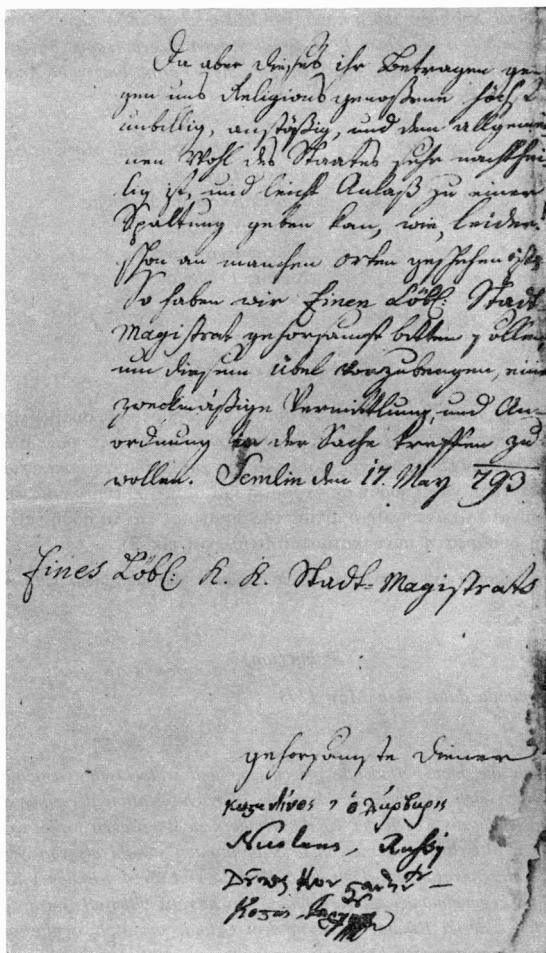 Da aber dieses ihr Betragen ge-
gen uns Religions genoßene höchst
unbillig, anstößig, und dem allgemei
nen Wohl des Staates sehr nachthei
lig ist, und leicht Anlaß zu einer
Spaltung geben kan, wie, leider!
schon an manchen Orten geschehen ist.
So haben wir Einen Löbl: Stadt
Magistrat gehorsamst bitten sollen,
um diesem übel vorzubeugen, eine
zweckmäßige Vermittlung, und An-
ordnung in der Sache treffen zu
wollen. Semlin den 17. May 793
Eines Löbl: K. K. Stadt-Magistrats
gehorsamste Diener
Nicolaus